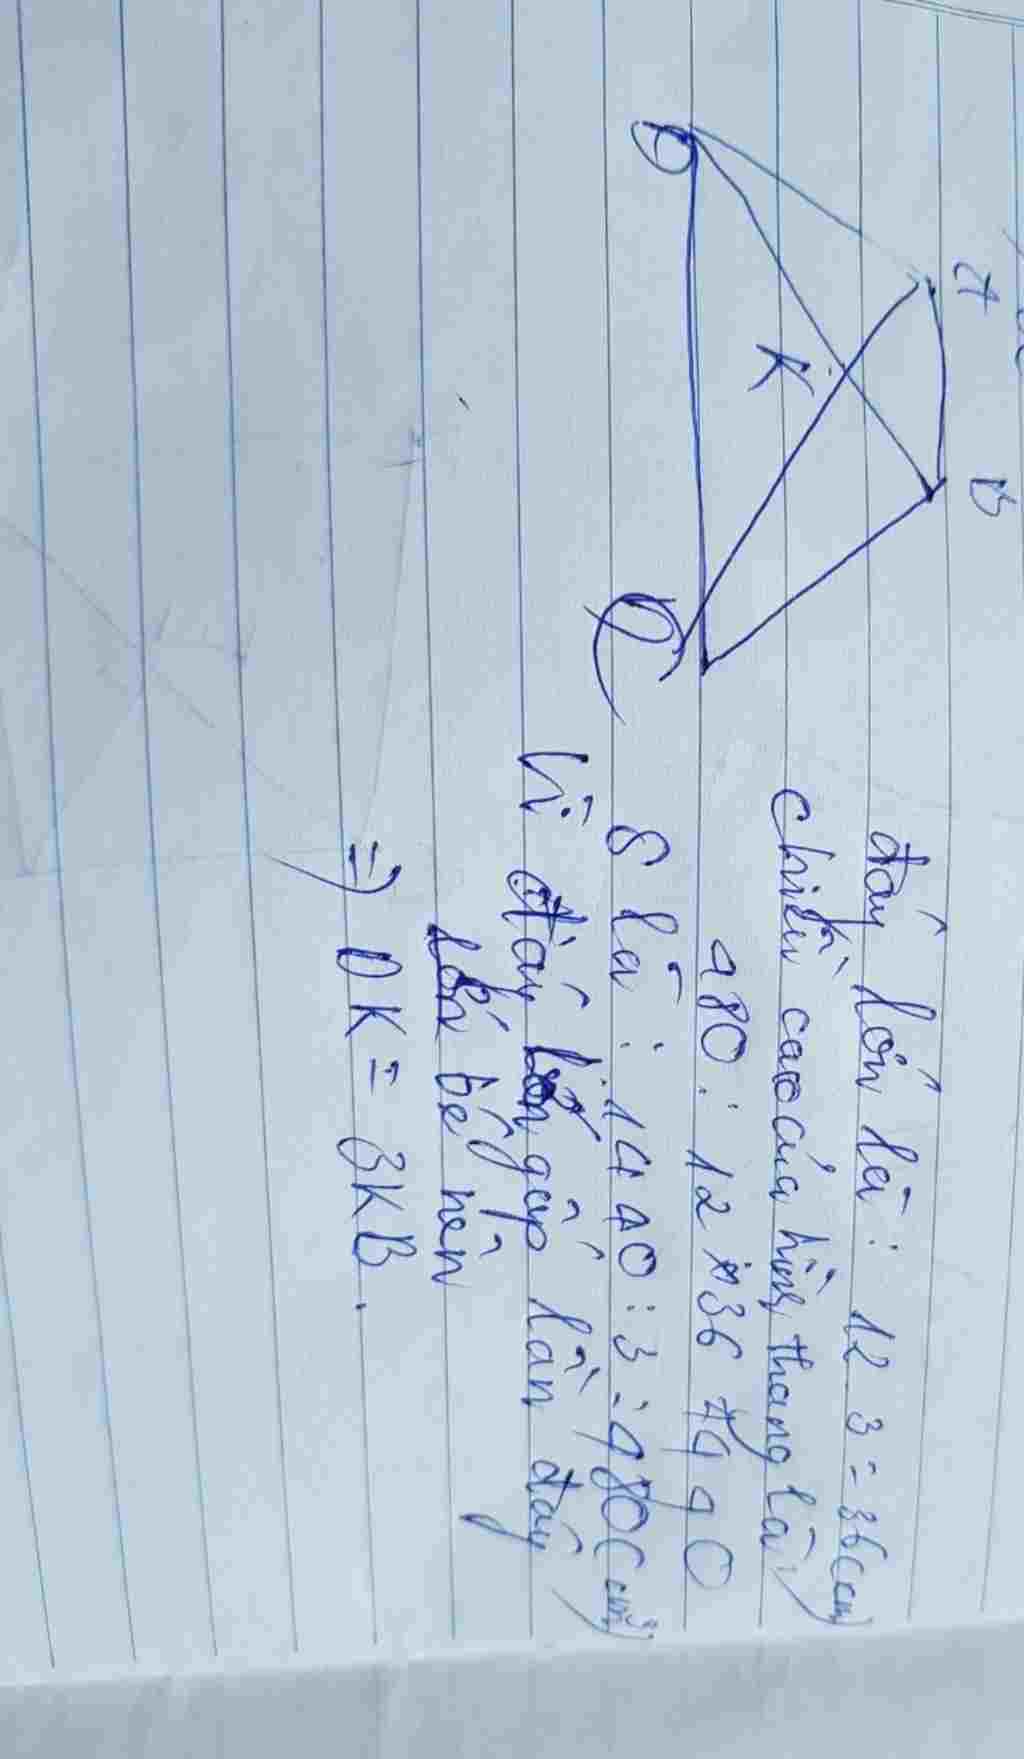 A
B
K
D
C
đáy lớn là: 12.3=36(cm)
chiều cao của hình thang là:
480:12×36=1440
S là: 1440:3=480(cm²)
Vì đáy lớn gấp lần đáy
bé nên
=) DK=3KB.